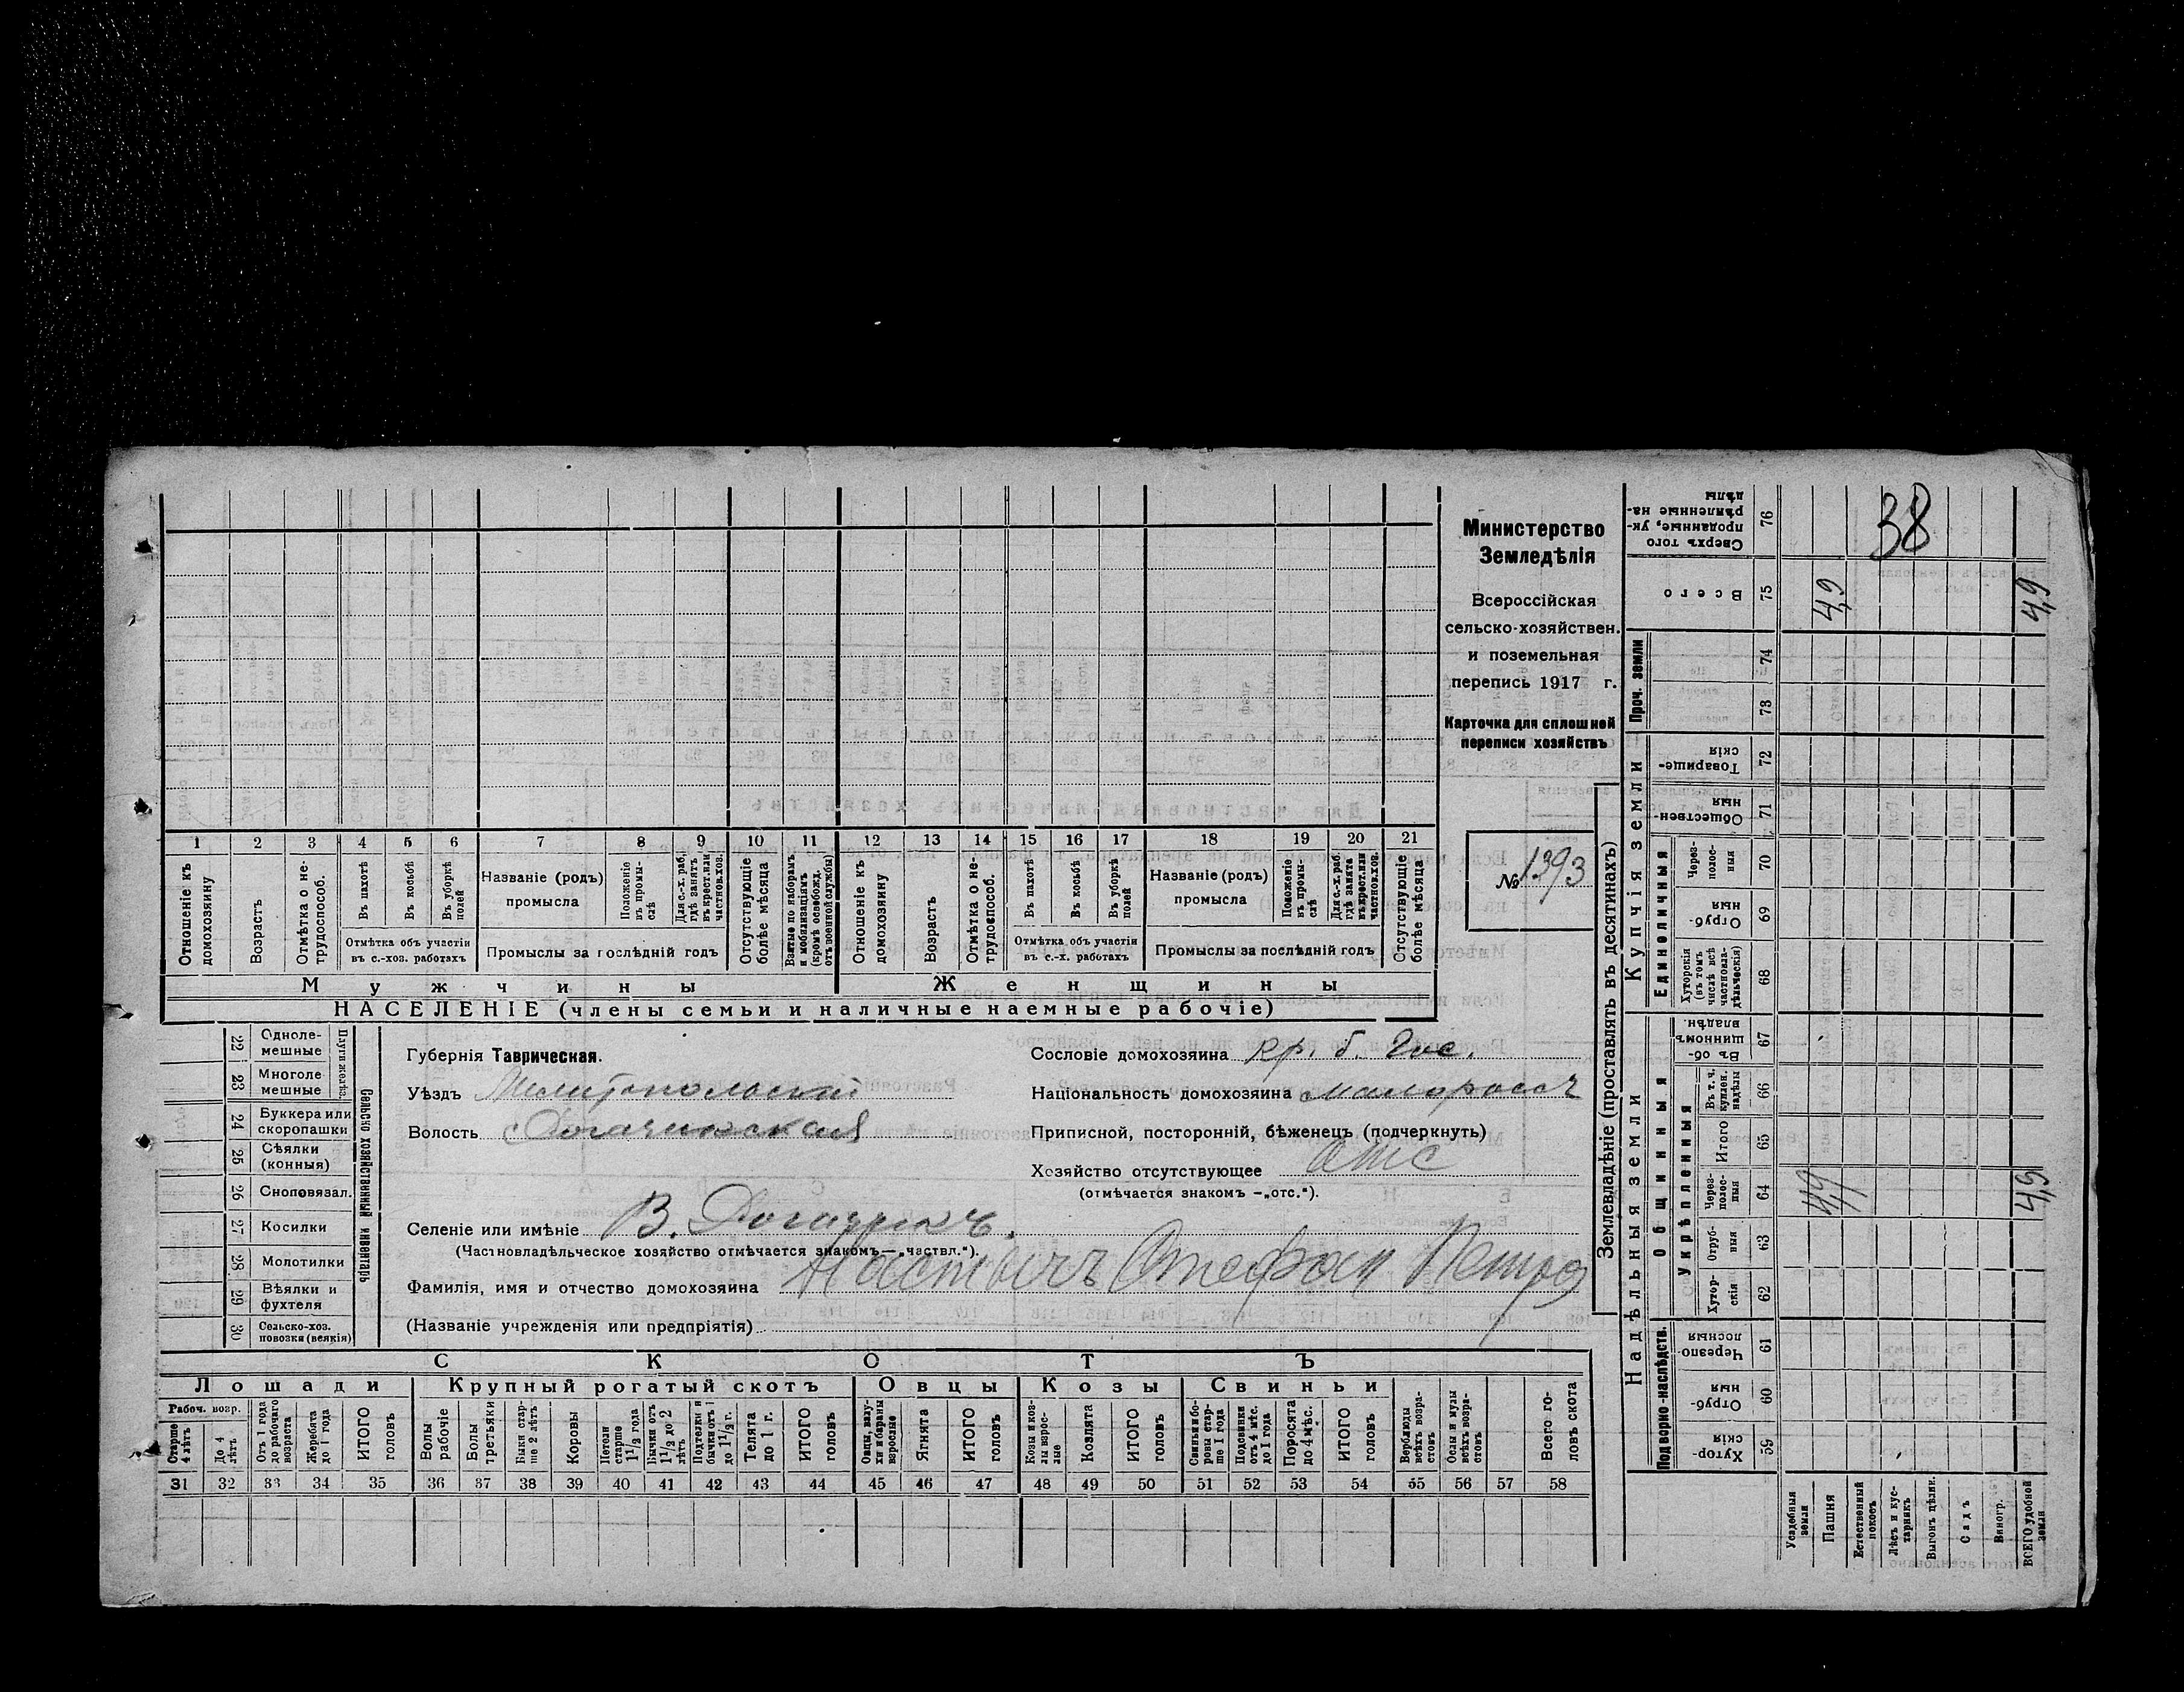 Министерство
Земледѣлія
Всероссійская
сельско-хозяйствен.
и поземельная
перепись 1917 г.
Карточка для сплошной
переписи хозяйствъ
№ 1393
1 2 3 4 5 6 7 8 9 10 11 12 13 14 15 16 17 18 19 20 21
Отношеніе къ домохозяину
Возрастъ
Отмѣтка о не-трудоспособ.
Въ пахотѣ
Въ косьбѣ
Въ уборкѣ полей
Отмѣтка объ участіи
въ с.-хоз. работахъ
Названіе (родъ)
промысла
Положеніе въ промы-слѣ
Для с.-х. раб. гдѣ занятъ въ крест. или частнов. хоз.
Промыслы за послѣдній годъ
Отсутствующіе болѣе мѣсяца
Взятые по наборамъ и мобилизаціямъ (кромѣ освобожд. отъ военной службы)
Отношеніе къ домохозяину
Возрастъ
Отмѣтка о не-трудоспособ.
Въ пахотѣ
Въ косьбѣ
Въ уборкѣ полей
Отмѣтка объ участіи
въ с.-х. работахъ
Названіе (родъ)
промысла
Положеніе въ промы-слѣ
Для с.-х. раб. гдѣ занята въ крест. или частнов. хоз.
Промыслы за послѣдній годъ
Отсутствующіе болѣе мѣсяца
Мужчины Женщины
НАСЕЛЕНІЕ (члены семьи и наличные наемные рабочіе)
22 Одноле-мешные
23 Многоле мешные
Плуги желѣз.
24 Буккера или скоропашки
25 Сѣялки (конныя)
26 Сноповязал.
27 Косилки
28 Молотилки
29 Вѣялки и фухтеля
30 Сельско-хоз. повозки (всякія)
Сельско хозяйственный инвентарь
Губернія Таврическая.
Уѣздъ Мелитопольскій
Волость
Селеніе или имѣніе В. Рогачикъ.
(Частновладѣльческое хозяйство отмѣчается знакомъ—„частвл.“).
Фамилія, имя и отчество домохозяина Настычъ Стефан Петро
(Названіе учрежденія или предпріятія)
Сословіе домохозяина кр. б. Гос.
Національность домохозяина малороссъ
Приписной, посторонній, бѣженецъ (подчеркнуть)
Хозяйство отсутствующее отс
(отмѣчается знакомъ —„отс.“).
СКОТЪ
Лошади Крупный рогатый скотъ Овцы Козы Свиньи
Рабоч. возр.
Старше 4 лѣтъ
До 4 лѣтъ
Отъ 1 года до рабочаго возраста
Жеребята до 1 года
ИТОГО головъ
Волы рабочіе
Волы третьяки
Быки стар-ше 2 лѣтъ
Коровы
Нетели старше 1½ года
Бычки отъ 1½ до 2 лѣтъ
Подтелки и бычки отъ 1 до 1½ г.
Телята до 1 г.
ИТОГО головъ
Овцы, валу-хи и бараны взрослые
Ягнята
ИТОГО головъ
Козы и коз-лы взрос-лые
Козлята
ИТОГО головъ
Свиньи и бо-ровы стар-ше 1 года
Подсвинки отъ 4 мѣс. до 1 года
Поросята до 4 мѣс.
ИТОГО головъ
Верблюды всѣхъ возра-стовъ
Ослы и мулы всѣхъ возра-стовъ
Всего го-ловъ скота
31 32 33 34 35 36 37 38 39 40 41 42 43 44 45 46 47 48 49 50 51 52 53 54 55 56 57 58
Землевладѣніе (проставлять въ десятинахъ)
Надѣльныя земли Купчія земли Проч. земли
Подворно-наслѣдств. Общинныя Единоличныя
Укрѣпленныя
Хутор-скія 59
Отруб-ныя 60
Черезпо-лосныя 61
Хутор-скія 62
Отруб-ныя 63
Через-полос-ныя 64 4,9 4,9
Итого 65
Въ т. ч. куплен. надѣлы 66
Въ об-щинномъ владѣн. 67
Хуторскія (въ томъ числѣ всѣ частновла-дѣльческія) 68
Отруб-ныя 69
Через-полос-ныя 70
Обществен-ныя 71
Товарище-скія 72
73
74
Всего 75 4,9 4,9
Сверхъ того проданные, ук-рѣпленные на-дѣлы 76
38
Усадебныя земли
Пашня
Естественный покосъ
Лѣсъ и кус-тарникъ
Выгонъ цѣлик.
Садъ
Виногр.
ВСЕГО удобной земли